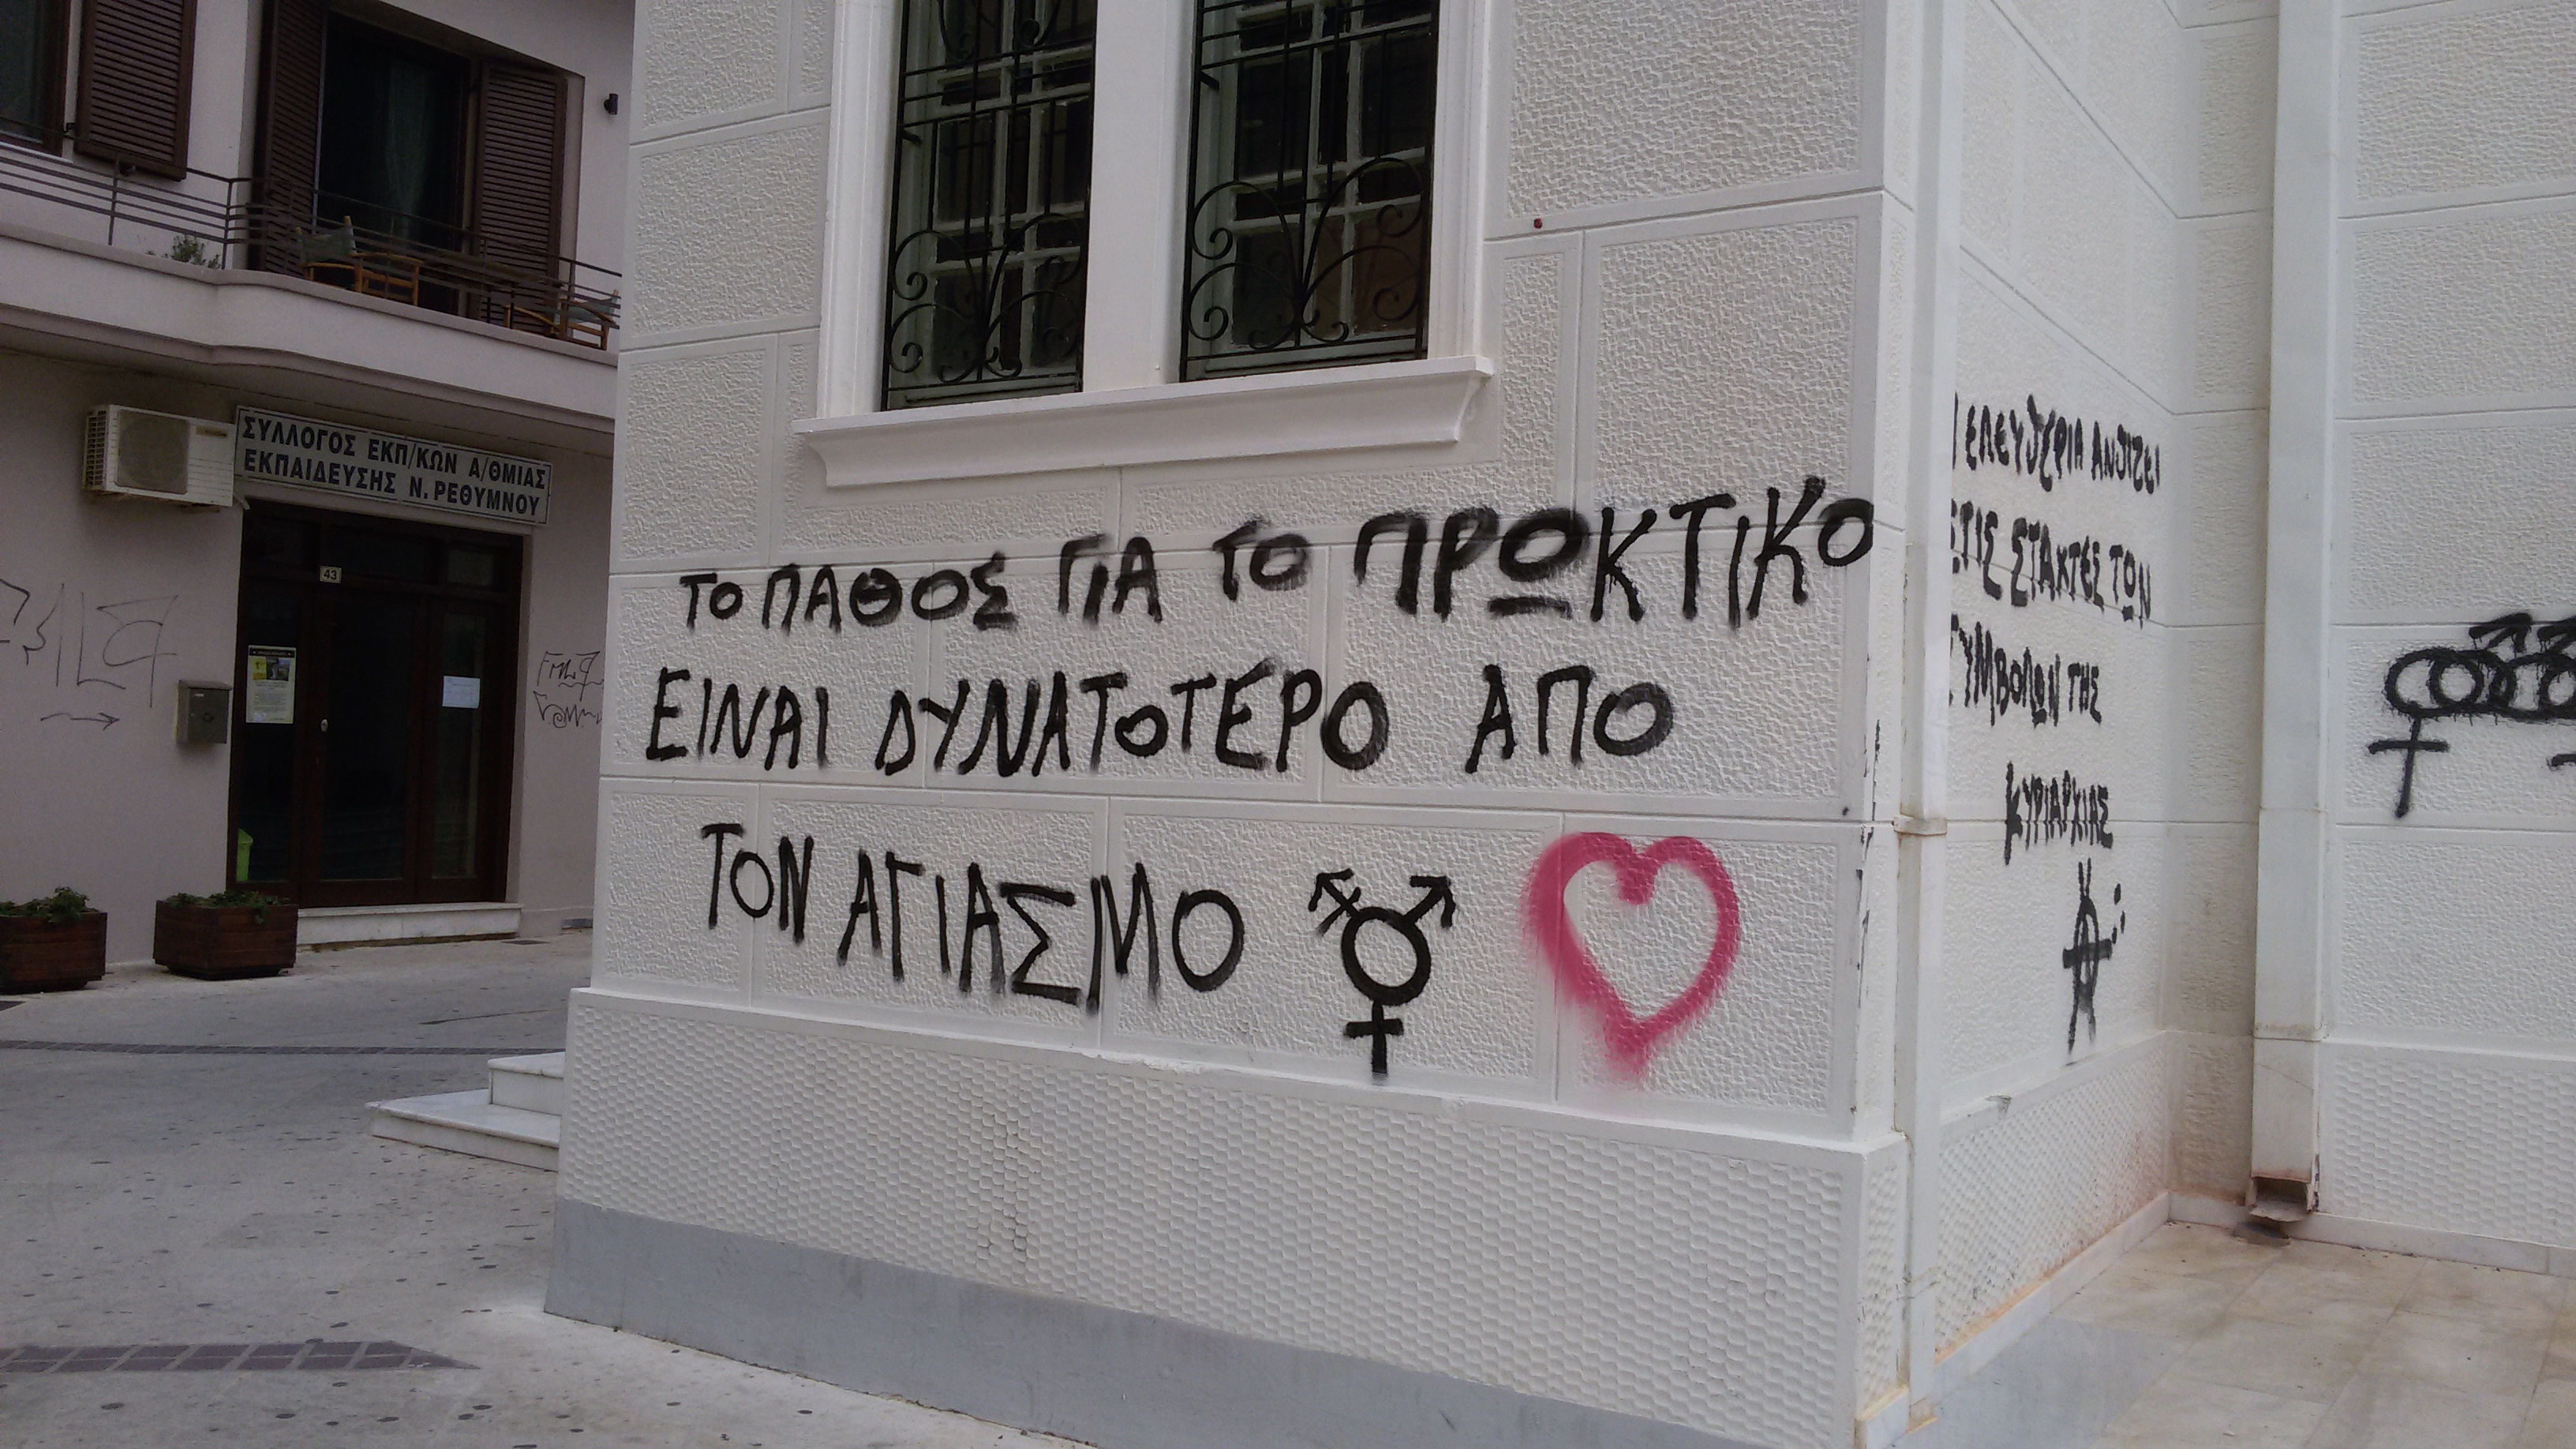 ΣΥΛΛΟΓΟΣ ΕΚΠ/ΚΩΝ Α/ΘΜΙΑΣ
ΕΚΠΑΙΔΕΥΣΗΣ Ν. ΡΕΘΥΜΝΟΥ
43
ΤΟ ΠΑΘΟΣ ΓΙΑ ΤΟ ΠΡΩΚΤΙΚΟ
ΕΙΝΑΙ ΔΥΝΑΤΟΤΕΡΟ ΑΠΟ
ΤΟΝ ΑΓΙΑΣΜΟ
ΕΛΕΥΘΕΡΙΑ ΑΝΘΙΖΕΙ
ΣΤΙΣ ΣΤΑΧΤΕΣ ΤΩΝ
ΣΥΜΒΟΛΩΝ ΤΗΣ
ΚΥΡΙΑΡΧΙΑΣ